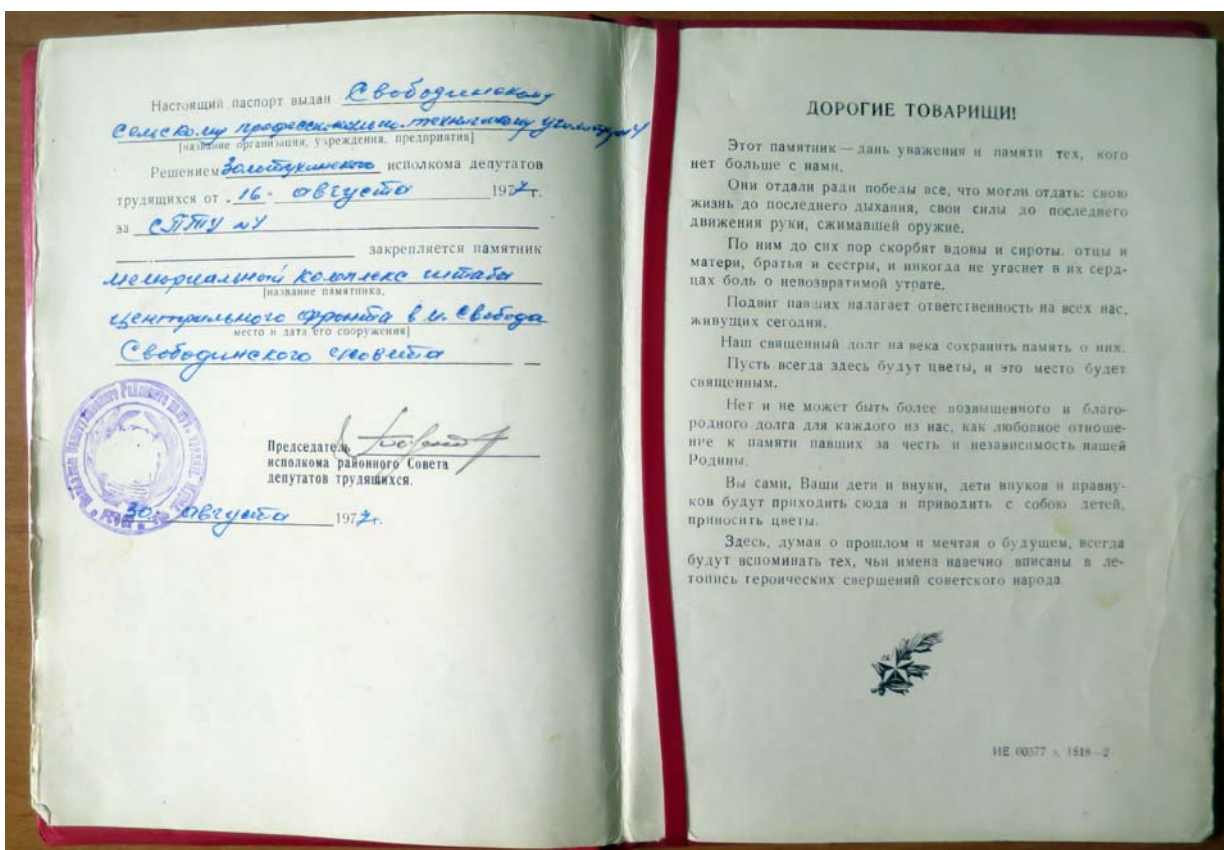 Настоящий паспорт выдан Свободинскому
сельскому профессионально-техническому училищу №4
[название организации, учреждения, предприятия]
Решением Золотухинского исполкома депутатов
трудящихся от „16. августа 1977г.
за СПТУ №4
закрепляется памятник
мемориальный комплекс штаба
[название памятника,
центрального фронта в м. Свобода
место и дата его сооружения]
Свободинского сповета
Председатель
исполкома районного Совета
депутатов трудящихся.
30. августа 1977г.
РСФСР
ДОРОГИЕ ТОВАРИЩИ!
Этот памятник — дань уважения и памяти тех, кого
нет больше с нами.
Они отдали ради победы все, что могли отдать: свою
жизнь до последнего дыхания, свои силы до последнего
движения руки, сжимавшей оружие.
По ним до сих пор скорбят вдовы и сироты. отцы и
матери, братья и сестры, и никогда не угаснет в их серд-
цах боль о невозвратимой утрате.
Подвиг павших налагает ответственность на всех нас,
живущих сегодня.
Наш священный долг на века сохранить память о них.
Пусть всегда здесь будут цветы, и это место будет
священным.
Нет и не может быть более возвышенного и благо-
родного долга для каждого из нас, как любовное отноше-
ние к памяти павших за честь и независимость нашей
Родины.
Вы сами, Ваши дети и внуки, дети внуков и правну-
ков будут приходить сюда и приводить с собою детей,
приносить цветы.
Здесь, думая о прошлом и мечтая о будущем, всегда
будут вспоминать тех, чьи имена навечно вписаны в ле-
топись героических свершений советского народа.
ИЕ 00577 з. 1618—2